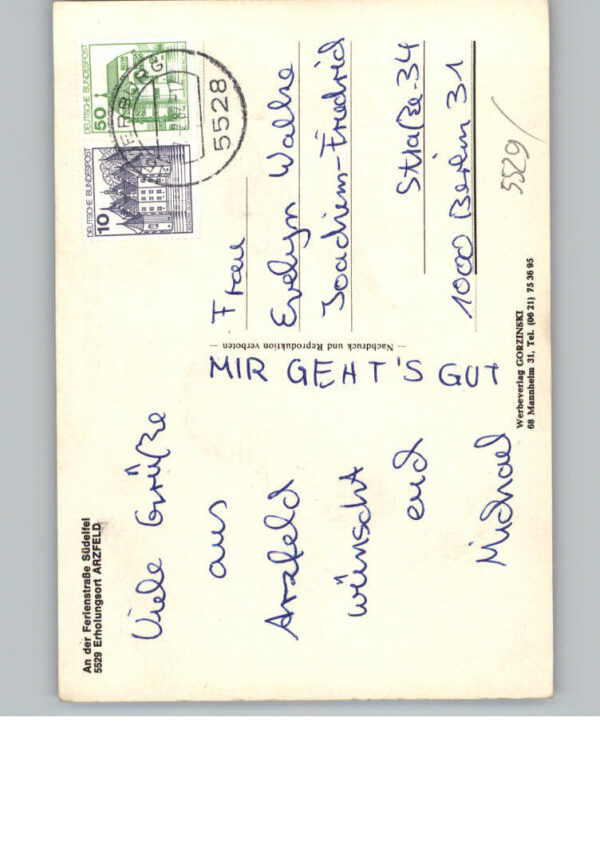 An der Ferienstraße Südeifel
5529 Erholungsort ARZFELD
Viele Grüße
aus
Arzfeld
wünscht
euch
Michael
MIR GEHT'S GUT
— Nachdruck und Reproduktion verboten —
DEUTSCHE BUNDESPOST
50
DEUTSCHE BUNDESPOST
10
5528
Frau
Evelyn Walke
Joachim-Friedrich
Straße 34
1000 Berlin 31
5529/
Werbeverlag GORZINSKI
68 Mannheim 31, Tel. (06 21) 75 36 95